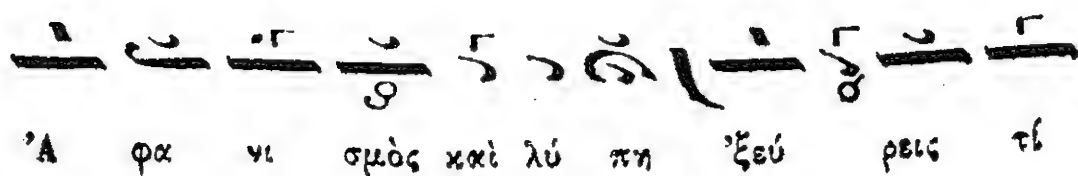 Ἀ φα νι σμὸς καὶ λύ πη ’ξεύ ρεις τί